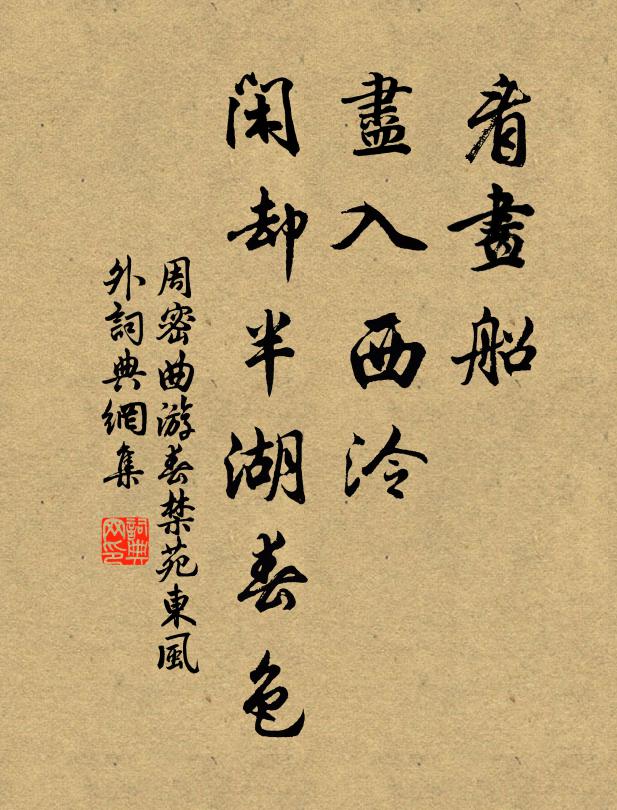 看畫船
盡入西泠
閑却半湖春色
周密曲游春禁苑東風
外詞典網集
詞典
网印